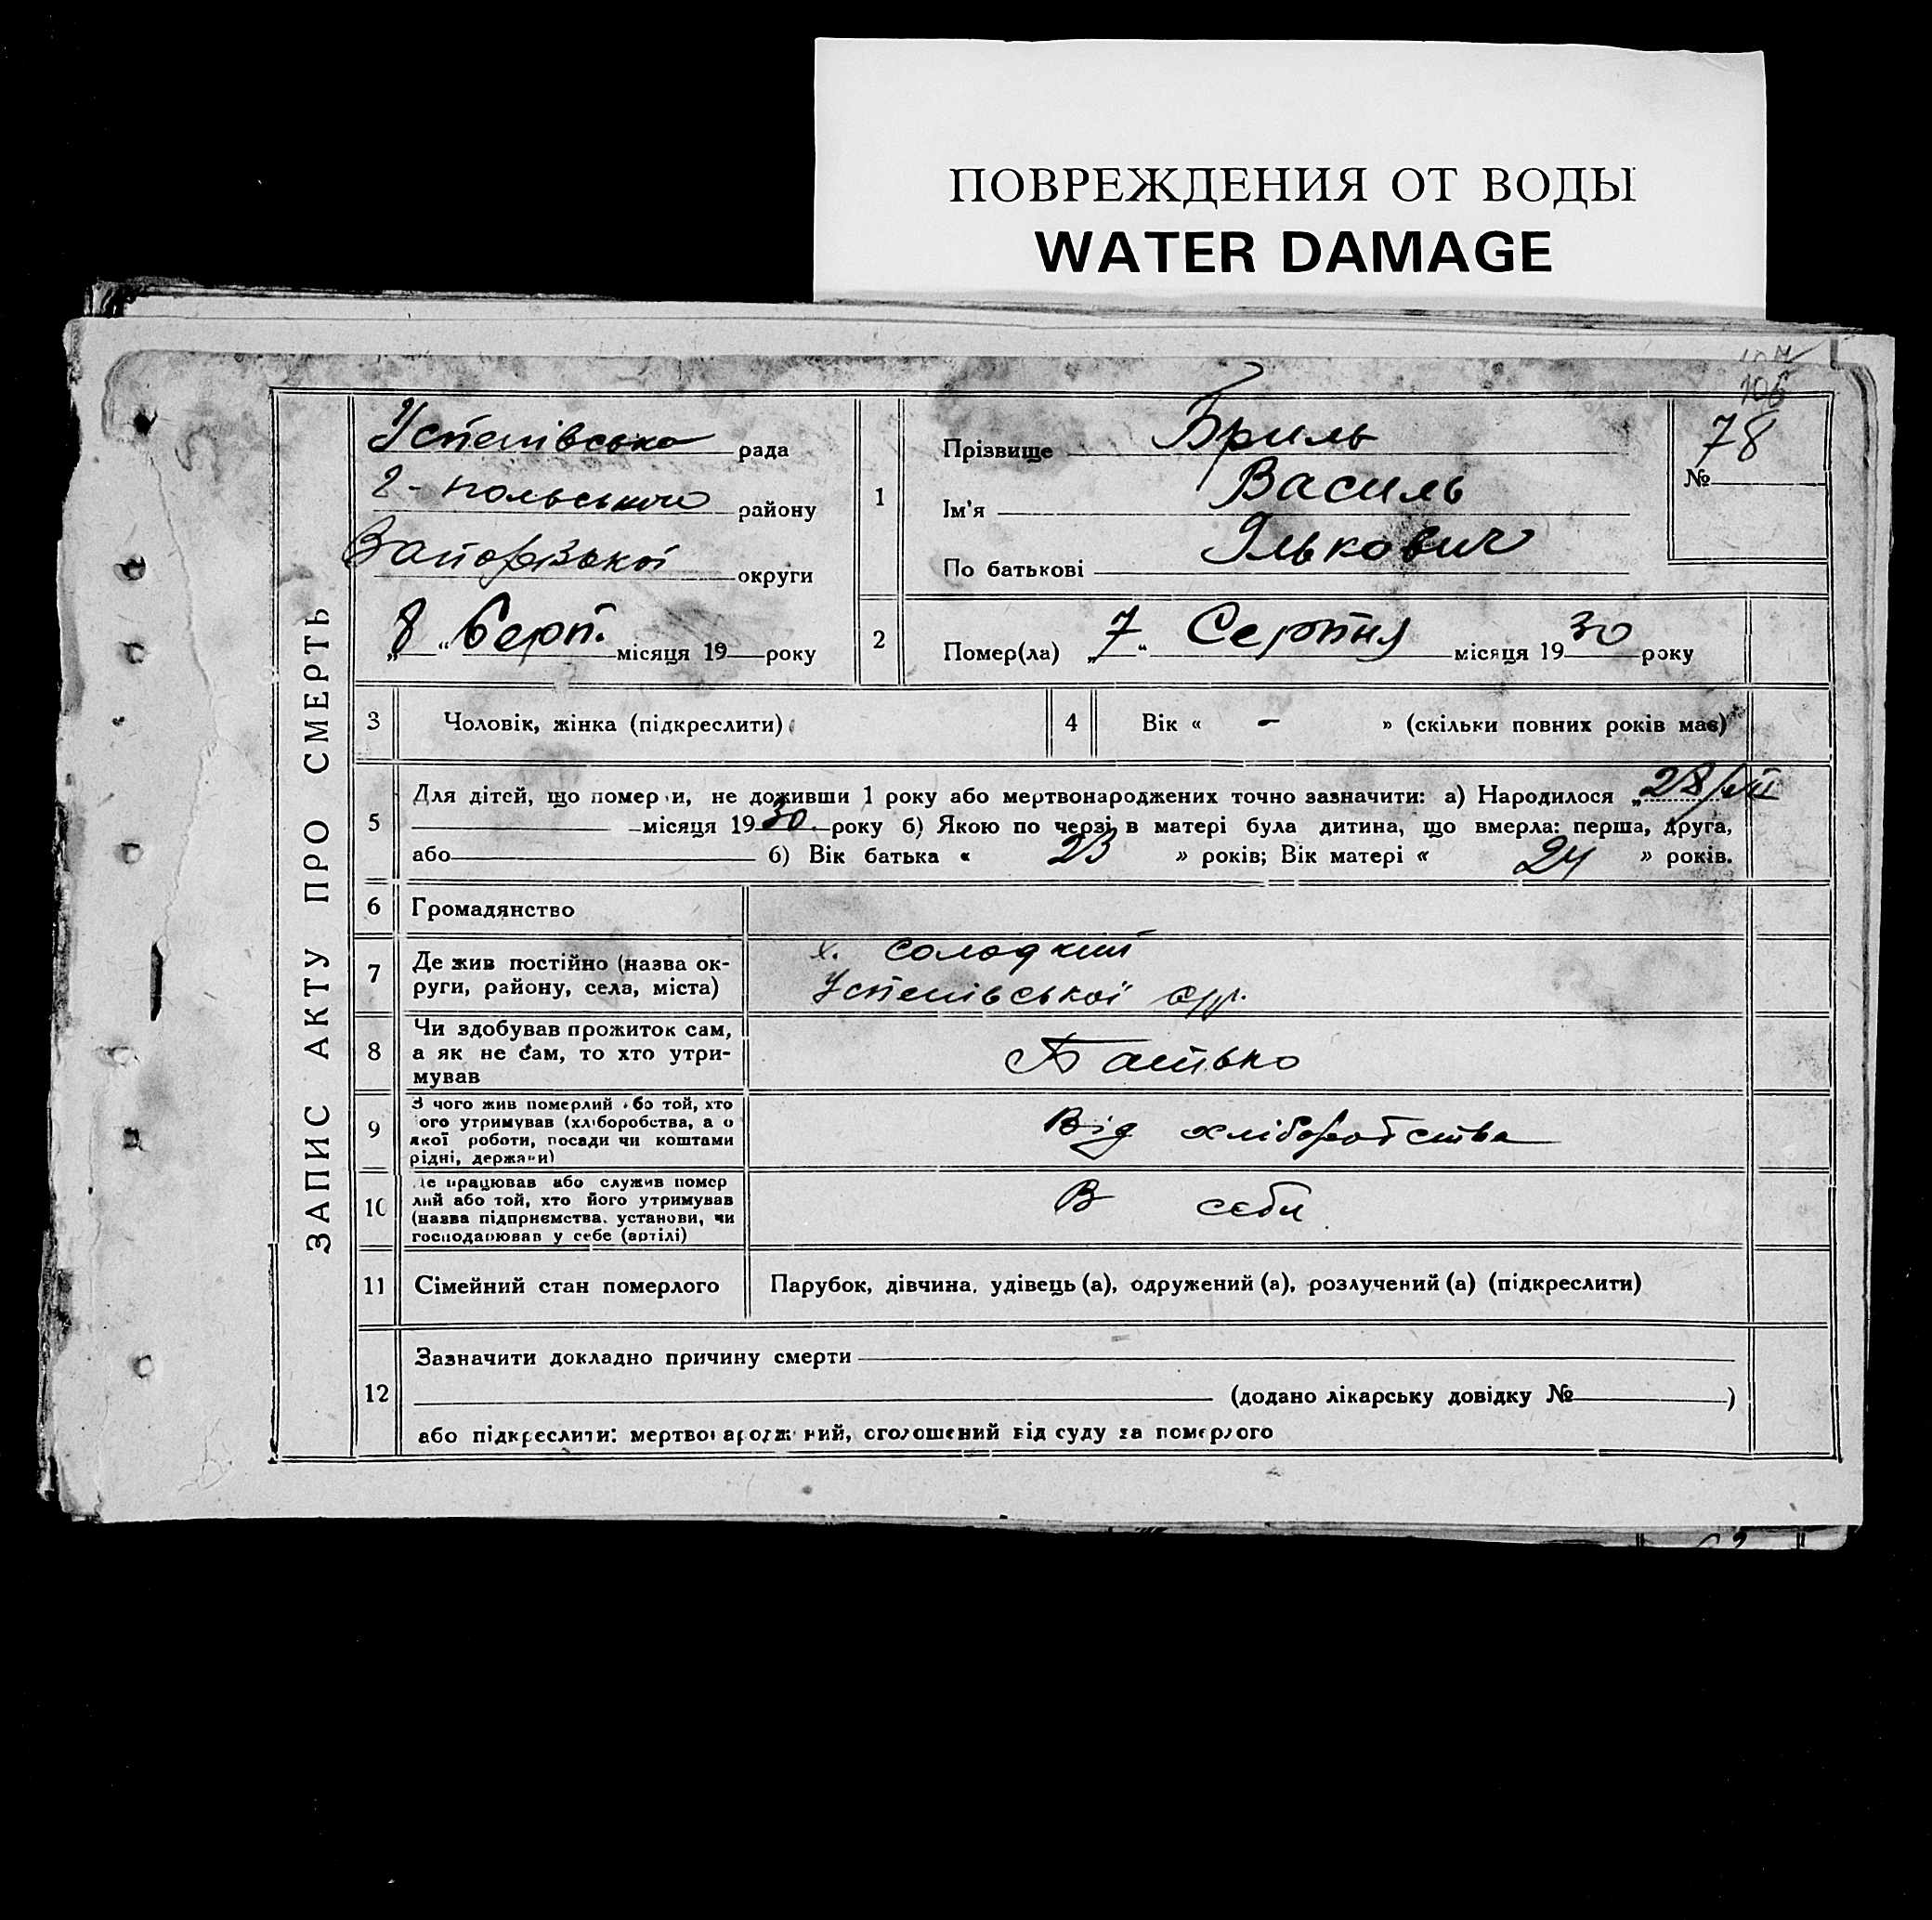 ПОВРЕЖДЕНИЯ ОТ ВОДЫ
WATER DAMAGE
106
78
№
ЗАПИС АКТУ ПРО СМЕРТЬ
Успенівська рада
г-польського району
Запорізької округи
„8“ Серп. місяця 19 року
1
Прізвище Бриль
Ім'я Василь
По батькові Ількович
2
Помер(ла) „7“ Серпня місяця 1930 року
3 Чоловік, жінка (підкреслити)
4 Вік « - » (скільки повних років має)
5
Для дітей, що померли, не доживши 1 року або мертвонароджених точно зазначити: а) Народилося „28/VII
місяця 1930 року б) Якою по черзі в матері була дитина, що вмерла: перша, друга,
або б) Вік батька « 23 » років; Вік матері « 24 » років.
6 Громадянство
7 Де жив постійно (назва ок-
руги, району, села, міста)
х. Солодкий
Успенівської с/р.
8 Чи здобував прожиток сам,
а як не сам, то хто утри-
мував
Батько
9 З чого жив померлий або той, хто
його утримував (хліборобства, а о
якої роботи, посади чи коштами
рідні, держави)
Від хліборобства
10 Де працював або служив помер
лий або той, хто його утримував
(назва підприємства, установи, чи
господарював у себе (артілі)
В себе
11 Сімейний стан померлого
Парубок, дівчина, удівець (а), одружений (а), розлучений (а) (підкреслити)
12
Зазначити докладно причину смерти
(додано лікарську довідку № )
або підкреслити: мертвонароджений, оголошений від суду за померлого